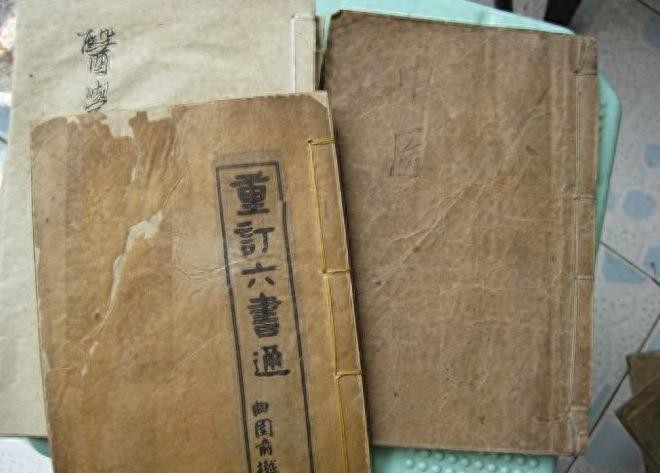 醫學
中医
重訂六書通
曲園俞樾